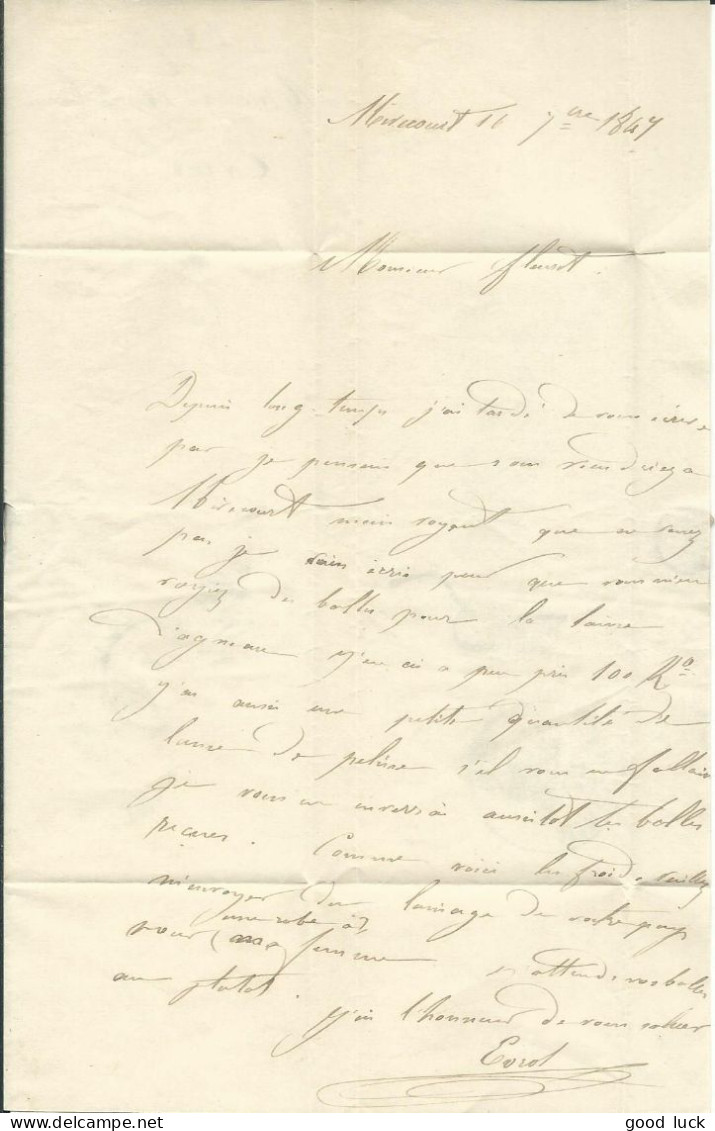 Mirecourt 16 7bre 1847
Monsieur fleurot.
Depuis long-temps j'ai tardé de vous écrire
par je pensais que vous viendriez a
Mirecourt mais voyant que ne venez
pas je vous ecris pour que vous m'en
voyiez des balles pour la laine
d'agneau j'en ai a peu près 100 Ko
j'ai aussi une petite quantité de
laine de pelure s'il vous en fallait
je vous en inverrai aussitot les balles
reçues. Comme voici les froids veuillez
m'envoyer du lainage de votre pays
pour (une robe à) ma femme j'attends vos balles
au plutot.
j'ai l'honneur de vous saluer
Evrot
delcampe.net
good luck